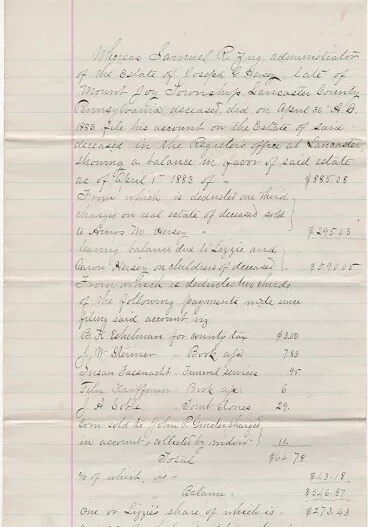 Whereas Samuel R. Zug administrator
of the Estate of Joseph G. Hersey, late of
Mount Joy Township, Lancaster County
Pennsylvania, deceased, did on April 30" A.D.
1883 file his account on the Estate of said
deceased, in the Registers office at Lancaster,
showing a balance in favor of said estate
as of April 1st 1883 of " $885.08
From which is deducted one third
charged on real estate of deceased sold
to Amos M. Hersey " $295.03
leaving balance due to Lizzie and
Aaron Hersey on children of deceased $590.05
From which is deducted two thirds
of the following payments made since
filing said account viz:
B. K. Eshelman for county tax $3.00
J. W. Steiner " Book a/c 7.83
Susan Fasenacht " Funeral services .95
Felix Kauffman " Book a/c 6
J. A. Coble " Tomb stones 29.
Corn sold to John P.
in account collected by widow 18.
Total $64.78
2/3 of which, is " $43.18
" Balance " $546.87
One or Lizzie's share of which is " $273.43